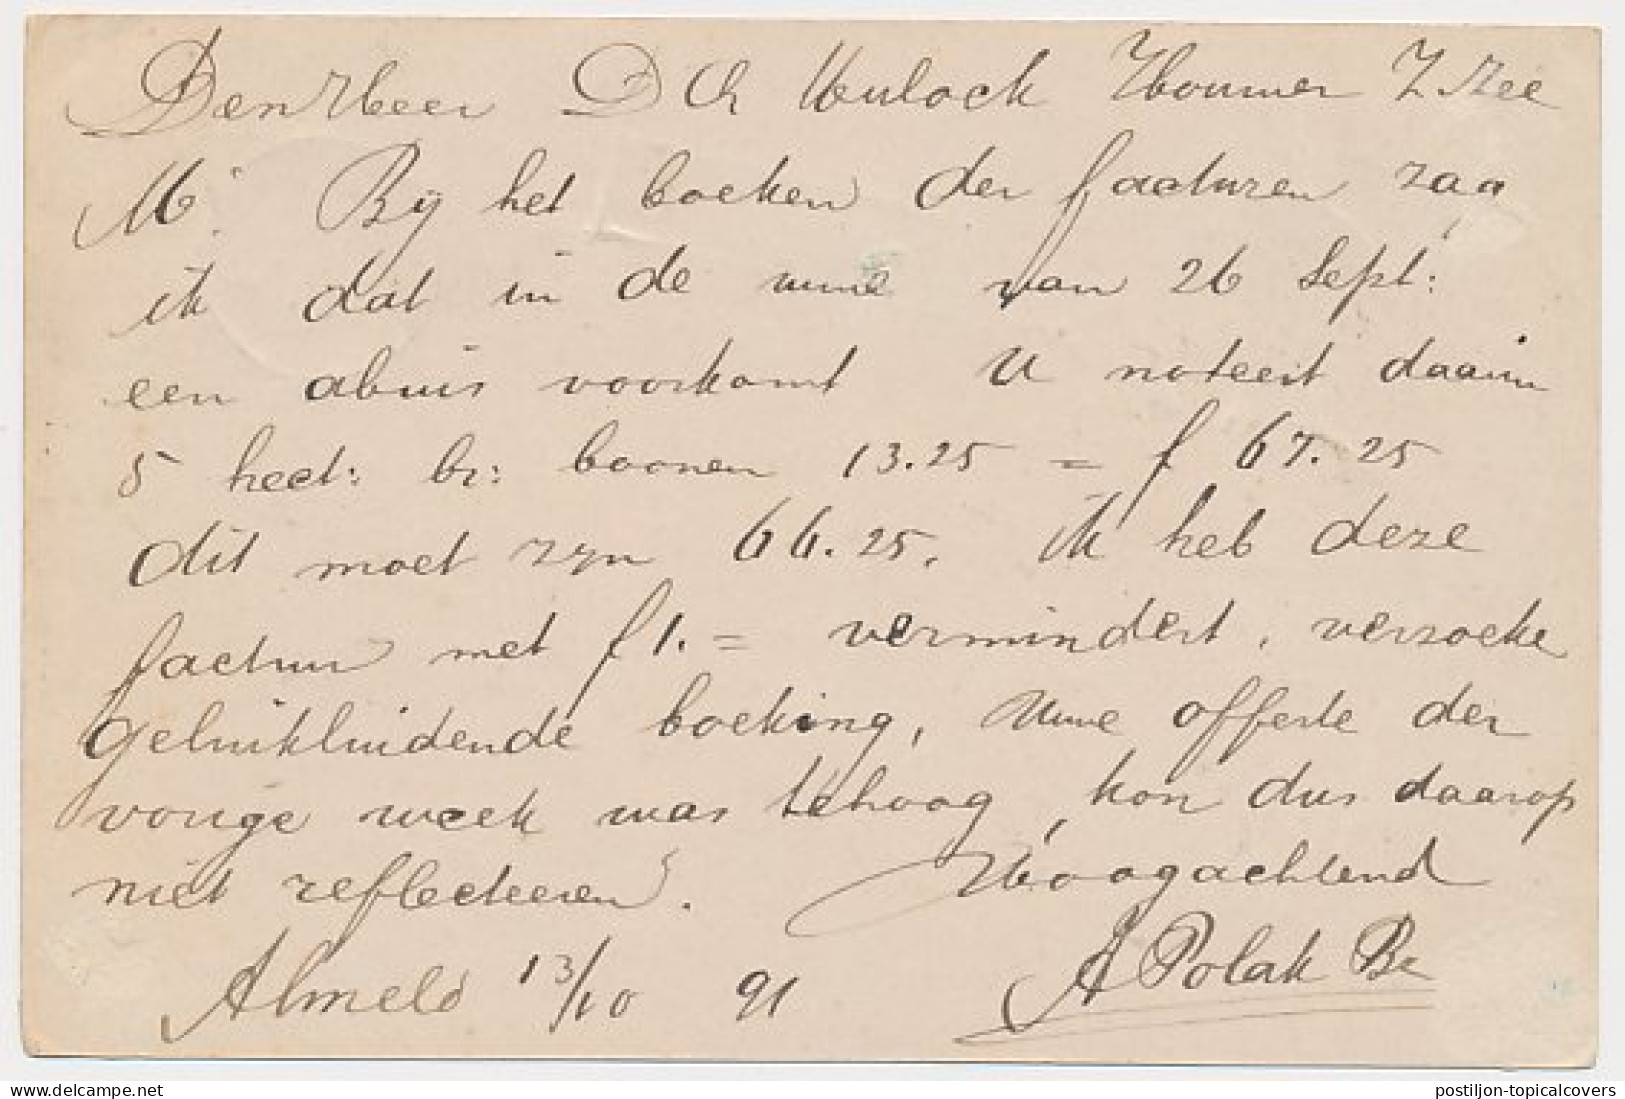 Den Heer D Ch Mulock Houwer Z.Zee
Mr. Bij het boeken der facturen zag
ik dat in de uwe van 26 Sept:
een abuis voorkomt U noteert daarin
5 hect: br: boonen 13.25 = f 67.25
dit moet zyn 66.25. ik heb deze
factuur met f 1. = vermindert, verzoeke
geluikluidende boeking, Uwe offerte der
vorige week was te hoog, kon dus daarop
niet reflecteeren.
Hoogachtend
Almelo 13/10 91 A Polak Bz
© delcampe.net
postiljon-topicalcovers